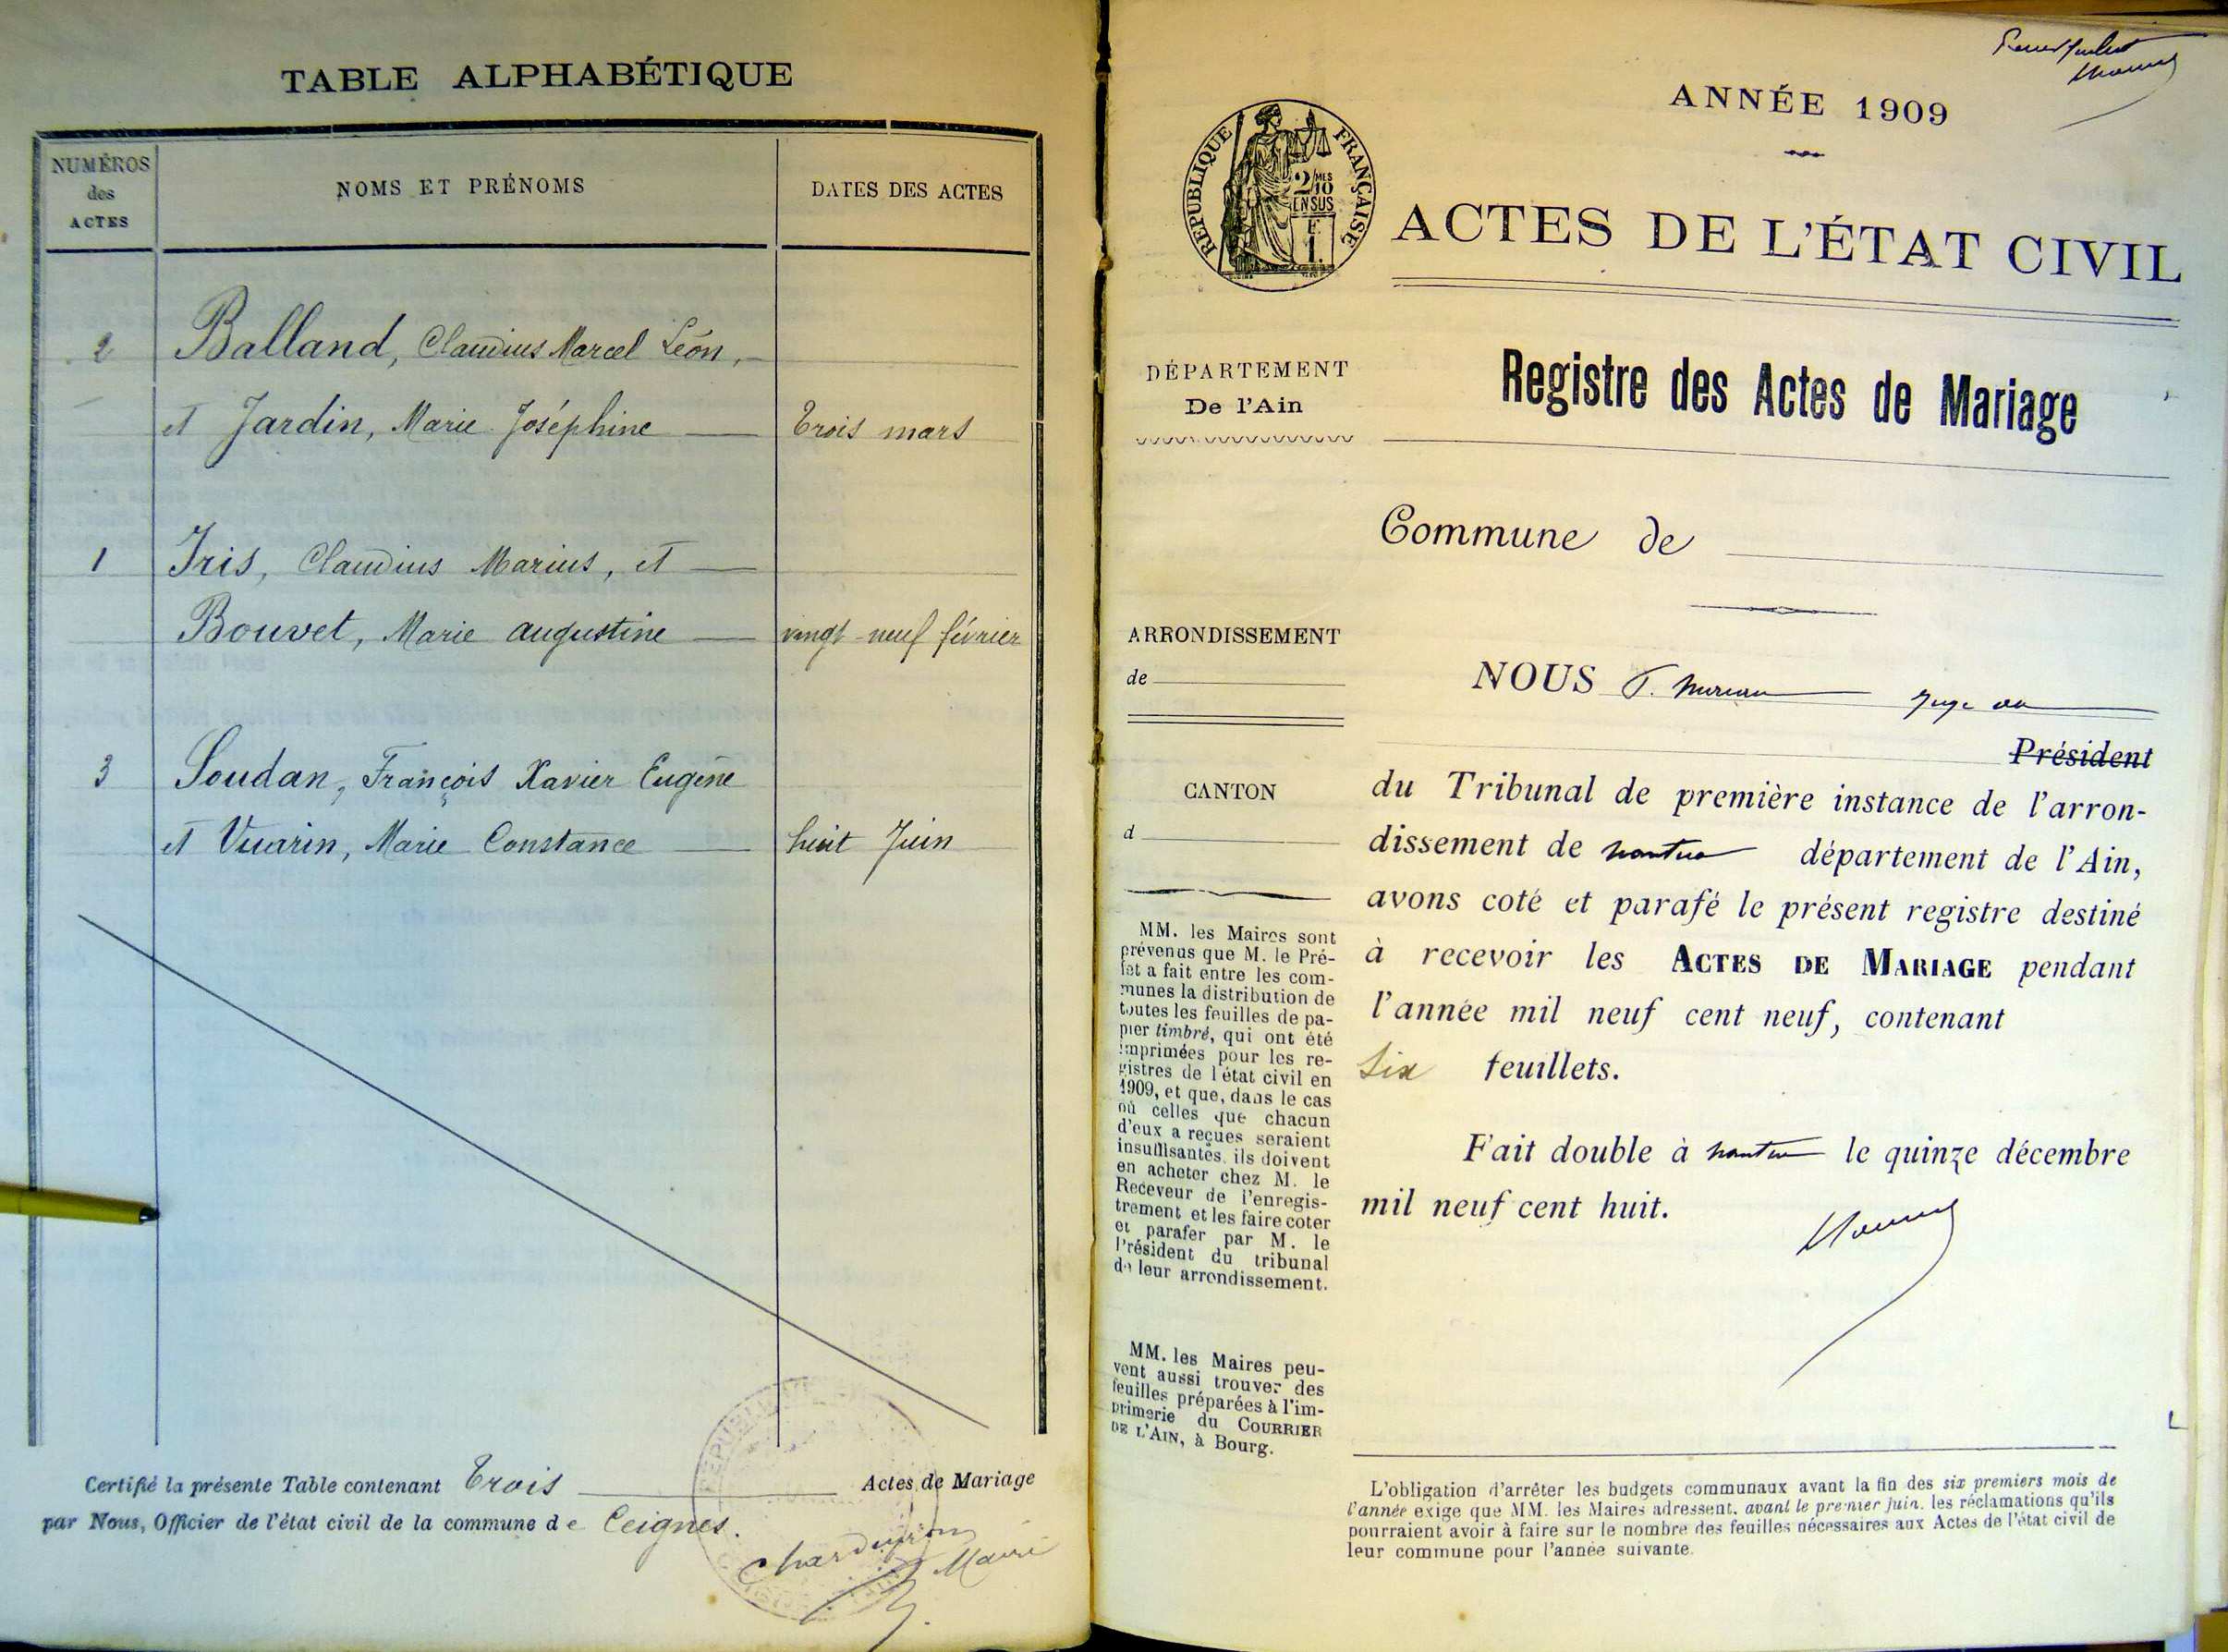 TABLE ALPHABÉTIQUE
NUMÉROS
des
ACTES
NOMS ET PRÉNOMS
DATES DES ACTES
2 Balland, Claudius Marcel Léon,
et Jardin, Marie Joséphine Trois mars
1 Iris, Claudius Marius, et
Bouvet, Marie augustine vingt-neuf février
3 Soudan, François Xavier Eugène
et Vuarin, Marie Constance huit Juin
Certifié la présente Table contenant Trois Actes de Mariage
par Nous, Officier de l'état civil de la commune de Ceignes.
Maire
ANNÉE 1909
RÉPUBLIQUE FRANÇAISE
2/10 MES
EN SUS
ACTES DE L'ÉTAT CIVIL
DÉPARTEMENT
De l'Ain
Registre des Actes de Mariage
Commune de
ARRONDISSEMENT
de
CANTON
d
MM. les Maires sont
prévenus que M. le Pré-
fet a fait entre les com-
munes la distribution de
toutes les feuilles de pa-
pier timbré, qui ont été
imprimées pour les re-
gistres de l'état civil en
1909, et que, dans le cas
où celles que chacun
d'eux a reçues seraient
insuffisantes, ils doivent
en acheter chez M. le
Receveur de l'enregis-
trement et les faire coter
et parafer par M. le
Président du tribunal
de leur arrondissement.
MM. les Maires peu-
vent aussi trouver des
feuilles préparées à l'im-
primerie du COURRIER
DE L'AIN, à Bourg.
NOUS
Président
du Tribunal de première instance de l'arron-
dissement de nantua département de l'Ain,
avons coté et parafé le présent registre destiné
à recevoir les ACTES DE MARIAGE pendant
l'année mil neuf cent neuf, contenant
Six feuillets.
Fait double à nantua le quinze décembre
mil neuf cent huit.
L'obligation d'arrêter les budgets communaux avant la fin des six premiers mois de
l'année exige que MM. les Maires adressent, avant le premier juin, les réclamations qu'ils
pourraient avoir à faire sur le nombre des feuilles nécessaires aux Actes de l'état civil de
leur commune pour l'année suivante.